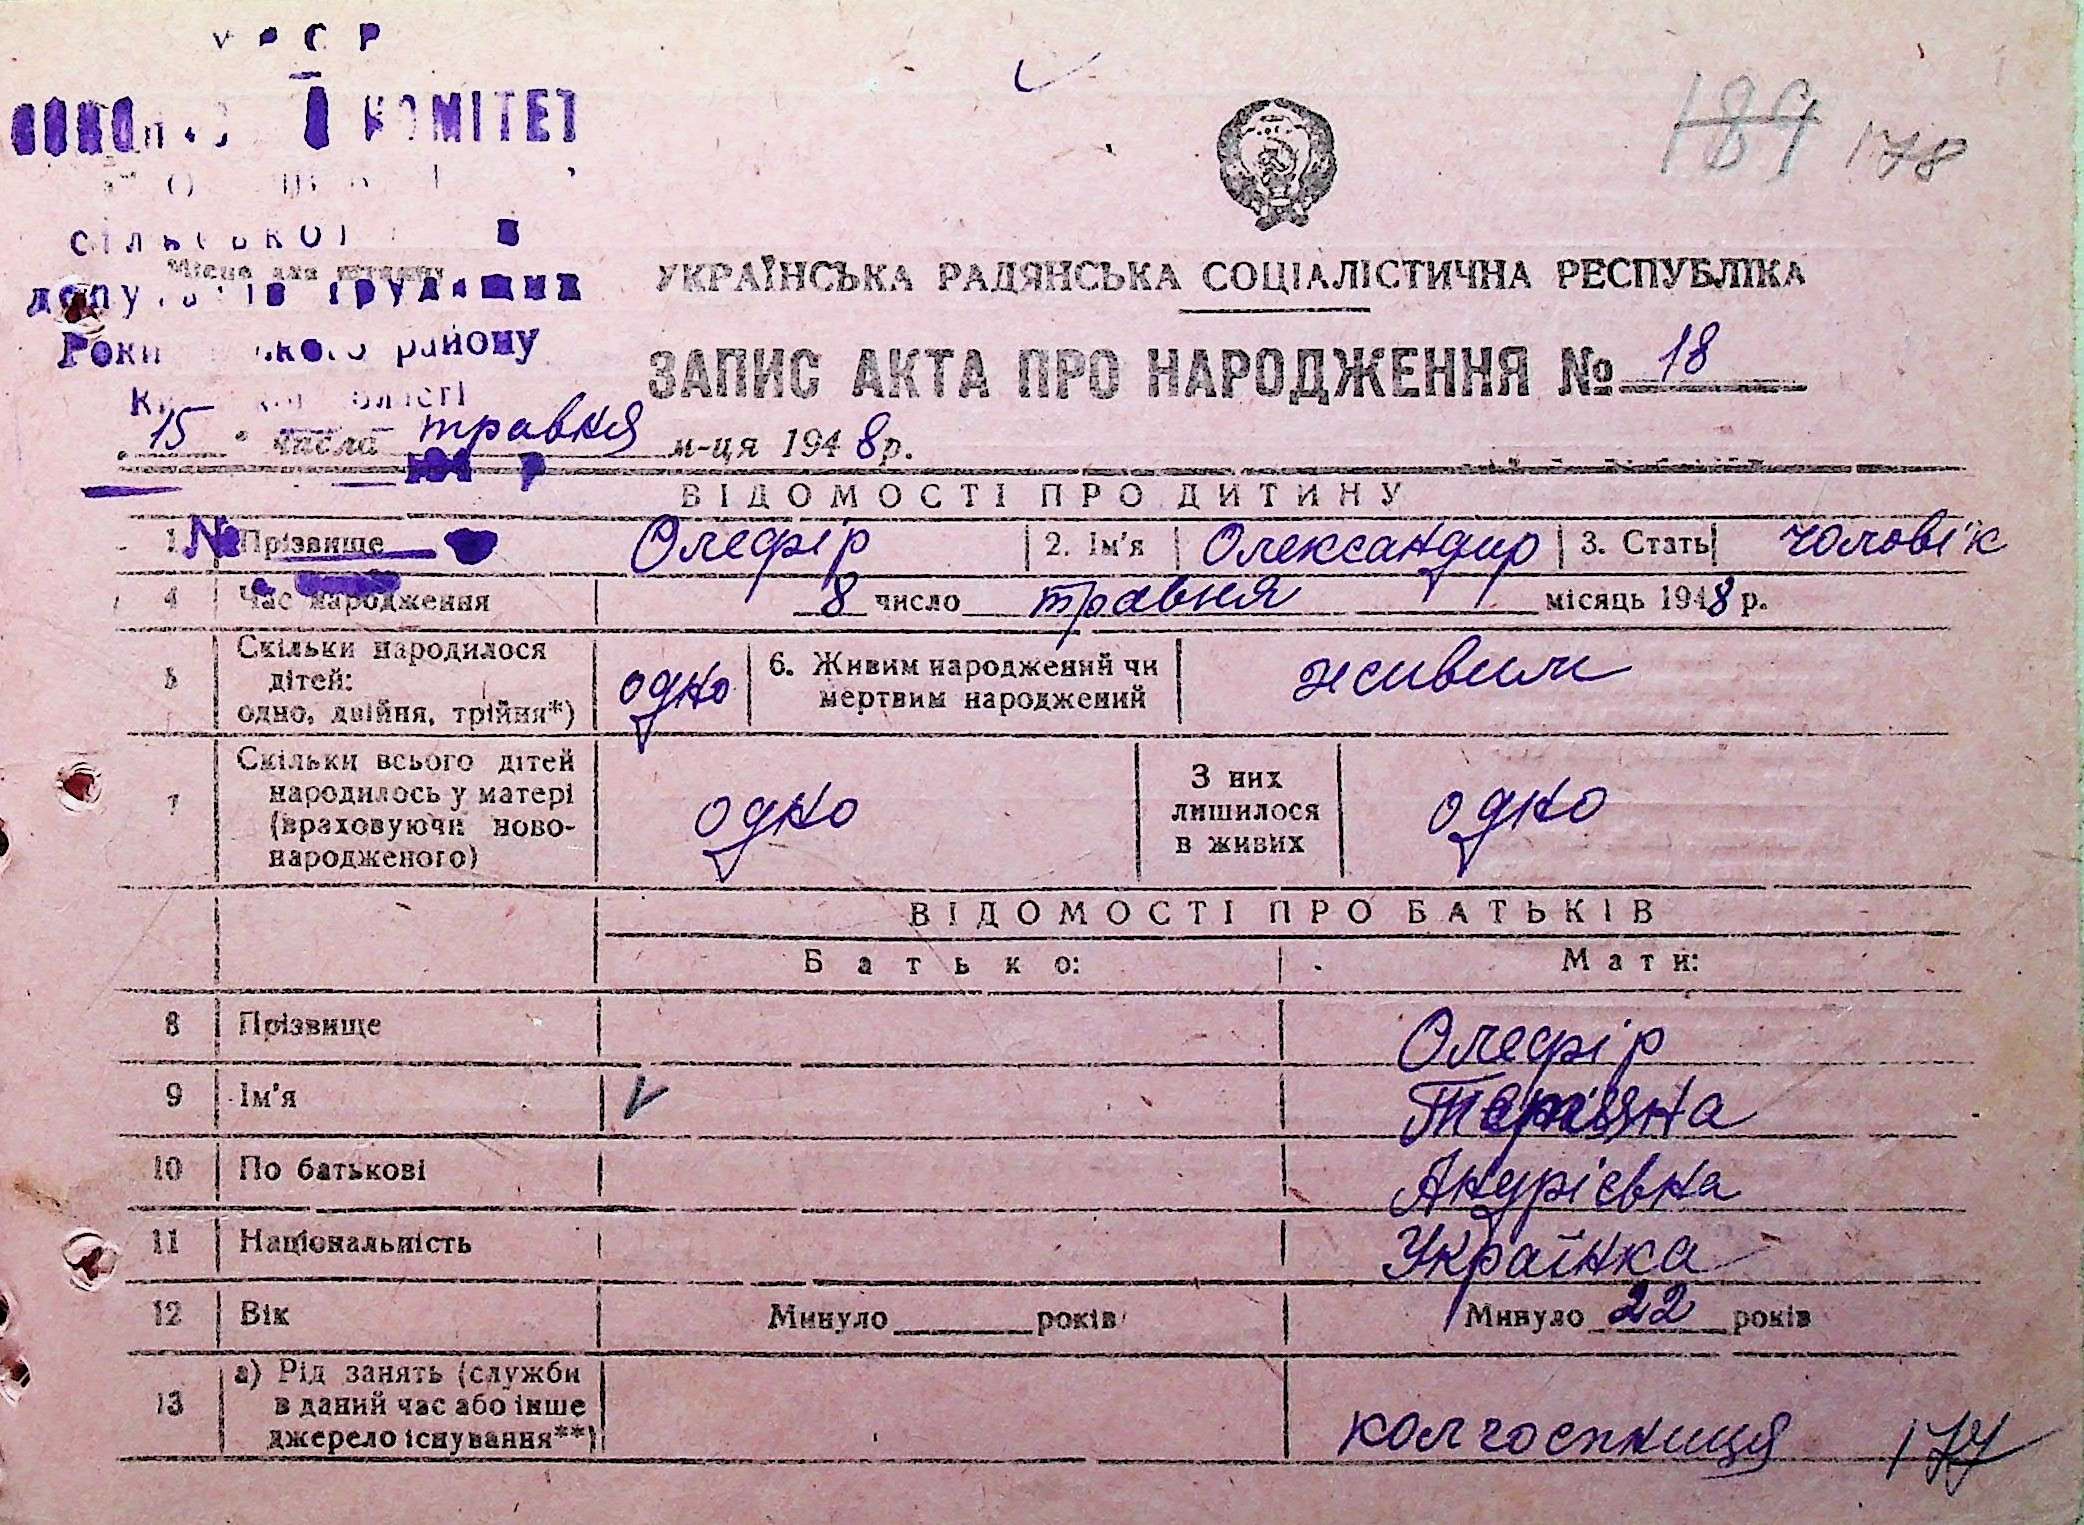 КОМІТЕТ
189 178
сільської
Місце для штампу
УКРАЇНСЬКА РАДЯНСЬКА СОЦІАЛІСТИЧНА РЕСПУБЛІКА
району
ЗАПИС АКТА ПРО НАРОДЖЕННЯ № 18
15 " числа травня м-ця 1948 р.
ВІДОМОСТІ ПРО ДИТИНУ
1 Прізвище Олефір 2. Ім'я Олександир 3. Стать чоловік
4 Час народження 8 число травня місяць 1948 р.
5 Скільки народилося
дітей:
одно, двійня, трійня*) одно 6. Живим народжений чи
мертвим народжений живим
7 Скільки всього дітей
народилось у матері
(враховуючи ново-
народженого) одно З них
лишилося
в живих одно
ВІДОМОСТІ ПРО БАТЬКІВ
Батько: Мати:
8 Прізвище Олефір
9 Ім'я
10 По батькові Андрієвна
11 Національність Українка
12 Вік Минуло років Минуло 22 років
13 а) Рід занять (служби
в даний час або інше
джерело існування**) колгоспниця 177